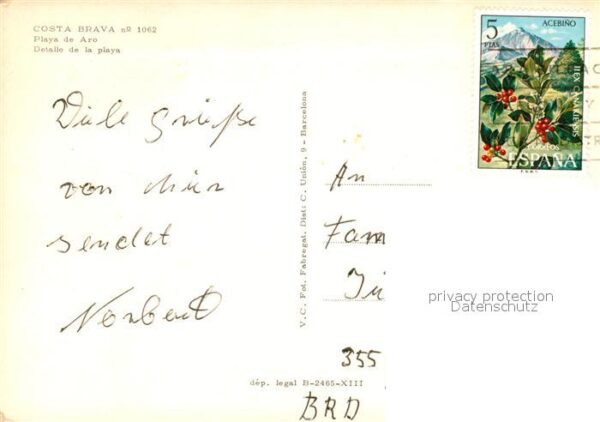 COSTA BRAVA nº 1062
Playa de Aro
Detalle de la playa
Viele Grüße
von hier
sendet
Norbert
V.C. Fot. Fabregat. Dist: C. Unión, 9 - Barcelona
5
PTAS
ACEBIÑO
ILEX CANARIENSIS
CORREOS
ESPAÑA
F.N.M.T.
An
Fam
privacy protection
Datenschutz
355
dép. legal B-2465-XIII
BRD